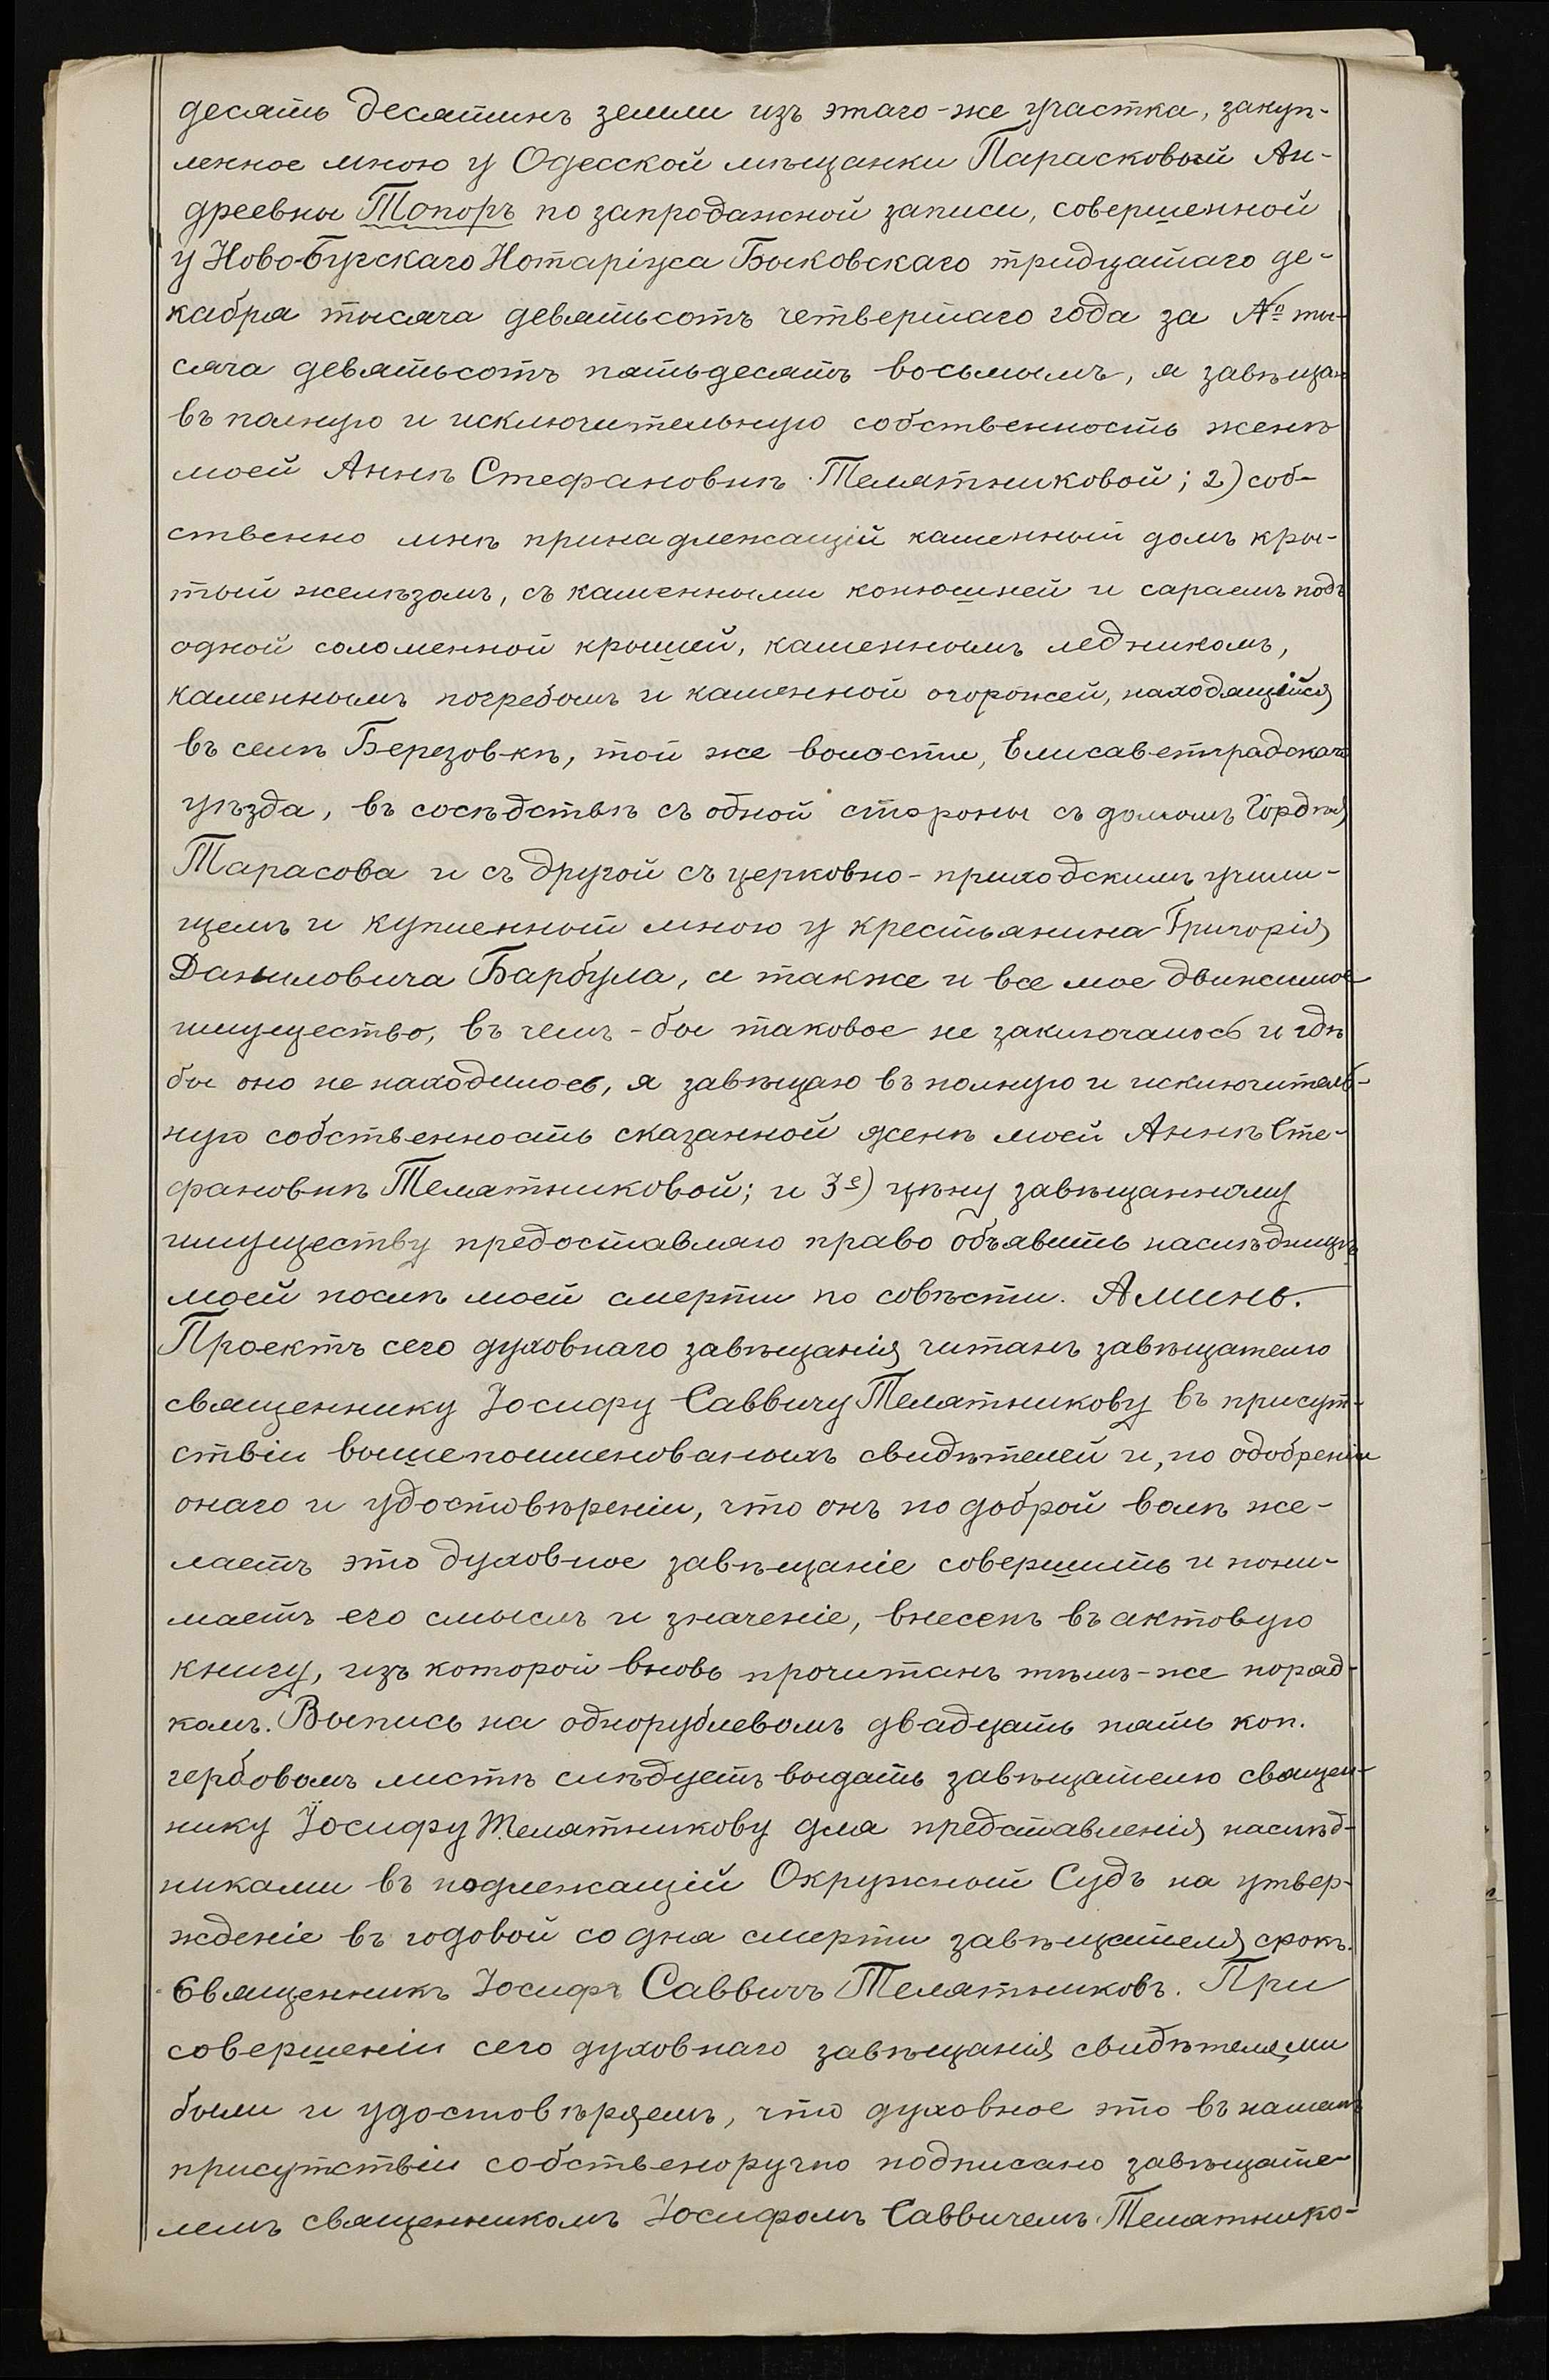 десять десятинъ земли изъ этаго-же участка, закуп-
ленное мною у Одесской мѣщанки Парасковьи Ан-
дреевны Топоръ по запродажной записи, совершенной
у Ново-Бугскаго Нотаріуса Быковскаго тридцатаго де-
кабря тысяча девятьсотъ четвертаго года за № ты-
сяча девятьсотъ пятьдесятъ восьмымъ, я завѣщаю
въ полную и исключительную собственность женѣ
моей Аннѣ Стефановнѣ Телятниковой; 2) соб-
ственно мнѣ принадлежащій каменный домъ кры-
тый желѣзомъ, съ каменными конюшней и сараемъ подъ
одной соломенной крышей, каменнымъ ледникомъ,
каменнымъ погребомъ и каменной огорожей, находящійся
въ селѣ Березовкѣ, той же волости, Елисаветградскаго
уѣзда, въ сосѣдствѣ съ одной стороны съ домомъ Гордѣя
Тарасова и съ другой съ церковно-приходскимъ учили-
щемъ и купленный мною у крестьянина Григорія
Даниловича Барбула, а также и все мое движимое
имущество, въ чемъ-бы таковое не заключалось и гдѣ
бы оно не находилось, я завѣщаю въ полную и исключитель-
ную собственность сказанной женѣ моей Аннѣ Сте-
фановнѣ Телятниковой; и 3е) цѣну завѣщанному
имуществу предоставляю право объявить наслѣдницѣ
моей послѣ моей смерти по совѣсти. Аминь.
Проектъ сего духовнаго завѣщанія читанъ завѣщателю
священнику Іосифу Саввичу Телятникову въ присут-
ствіи вышепоименованыхъ свидѣтелей и, по одобреніи
онаго и удостовѣреніи, что онъ по доброй волѣ же-
лаетъ это духовное завѣщаніе совершить и пони-
маетъ его смыслъ и значеніе, внесенъ въ актовую
книгу, изъ которой вновь прочитанъ тѣмъ-же поряд-
комъ. Выпись на однорублевомъ двадцать пять коп.
гербовомъ листѣ слѣдуетъ выдать завѣщателю священ-
нику Іосифу Телятникову для представленія наслѣд-
никами въ подлежащій Окружный Судъ на утвер-
жденіе въ годовой со дня смерти завѣщателя срокъ.
Священникъ Іосифъ Саввичъ Телятниковъ. При
совершеніи сего духовнаго завѣщанія свидѣтелями
были и удостовѣряемъ, что духовное это въ нашемъ
присутствіи собственоручно подписано завѣщате-
лемъ священникомъ Іосифомъ Саввичемъ Телятнико-